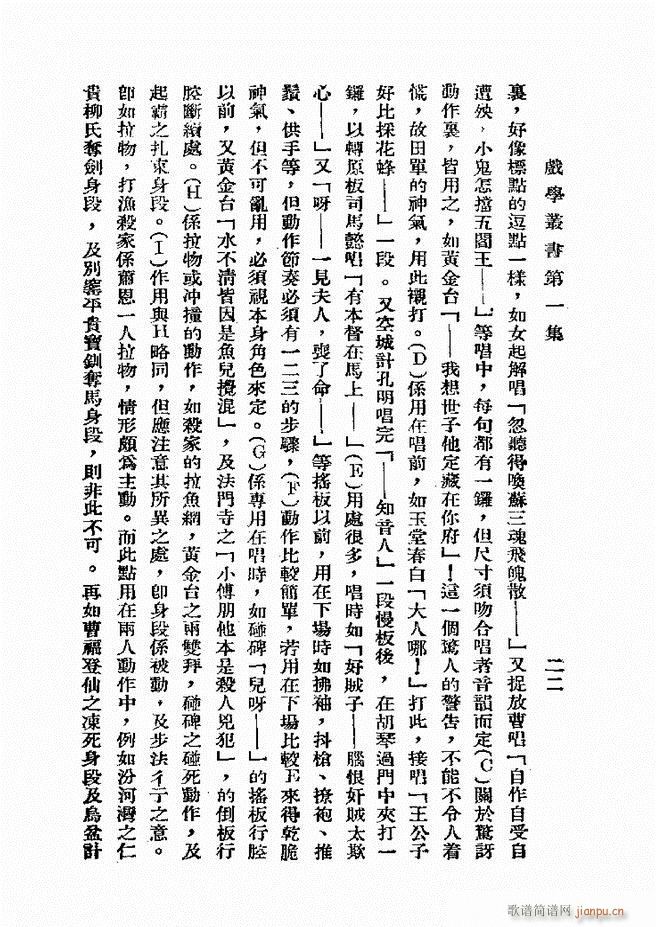 戲學叢書第一集
二二
裏，好像標點的逗點一樣，如女起解唱「忽聽得喚蘇三魂飛魄散——」又捉放曹唱「自作自受自
遭殃，小鬼怎擋五閻王——」等唱中，每句都有一鑼，但尺寸須吻合唱者音韻而定（C）關於驚訝
動作裏，皆用之，如黃金台「——我想世子他定藏在你府」！這一個驚人的警告，不能不令人着
慌，故田單的神氣，用此襯打。（D）係用在唱前，如玉堂春白「大人哪！」打此，接唱「王公子
好比採花蜂——」一段。又空城計孔明唱完「——知音人」一段慢板後，在胡琴過門中夾打一
鑼，以轉原板司馬懿唱「有本督在馬上——」（E）用處很多，唱時如「好賊子——腦恨奸賊太欺
心——」又「呀——一見夫人，喪了命——」等搖板以前，用在下場時如拂袖，抖槍、撩袍、推
鬚、供手等，但動作節奏必須有一二三的步驟，（F）動作比較簡單，若用在下場比較E來得乾脆
神氣，但不可亂用，必須視本身角色來定。（G）係專用在唱時，如碰碑「兒呀——」的搖板行腔
以前，又黃金台「水不清皆因是魚兒攪混」，及法門寺之「小傅朋他本是殺人兇犯」，的倒板行
腔斷續處。（H）係拉物或冲撞的動作，如殺家的拉魚網，黃金台之兩雙拜，碰碑之碰死動作，及
起霸之扎束身段。（I）作用與H略同，但應注意其所異之處，卽身段係被動，及步法彳亍之意。
卽如拉物，打漁殺家係蕭恩一人拉物，情形頗爲主動。而此點用在兩人動作中，例如汾河灣之仁
貴柳氏奪劍身段，及別窰平貴寶釧奪馬身段，則非此不可。再如曹福登仙之凍死身段及烏盆計
歌谱简谱网
jianpu.cn